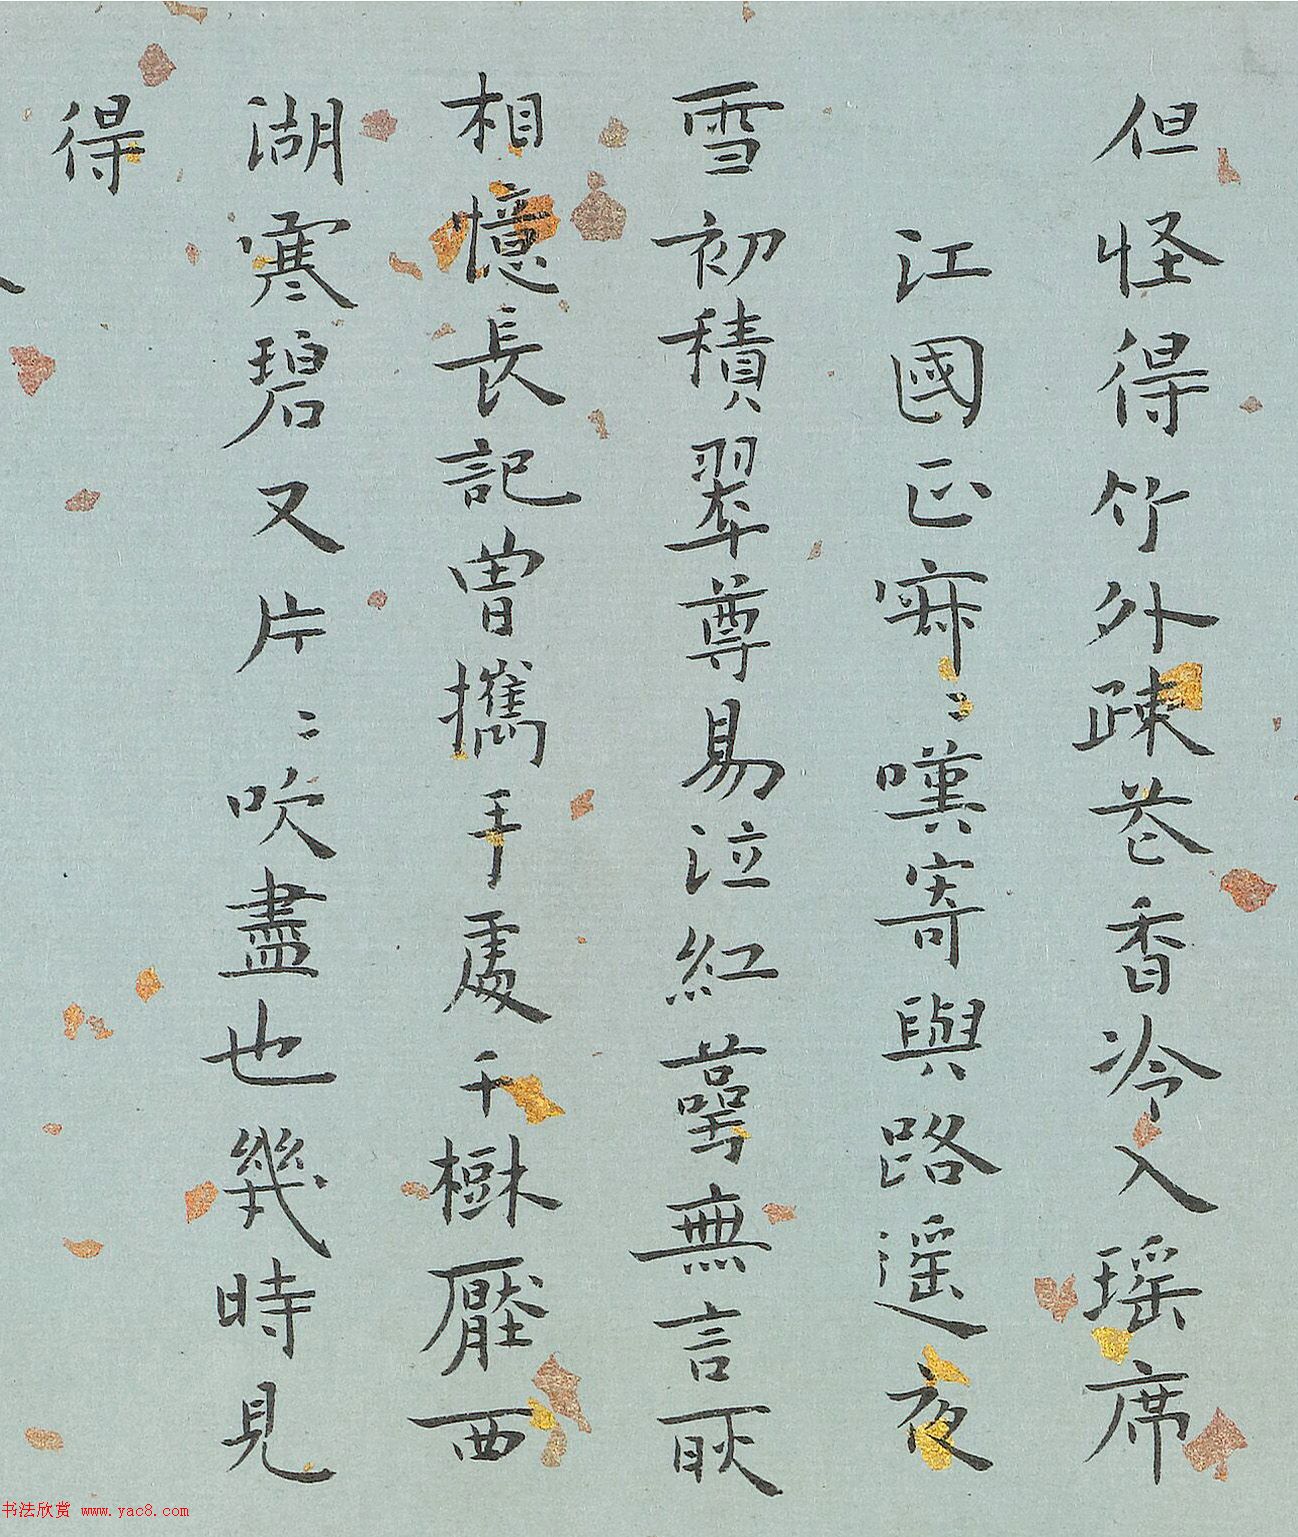 但怪得竹外疎花香冷入瑶席
江國正寂〻嘆寄與路遥夜
雪初積翠尊易泣紅萼無言耿
相憶長記曾攜手處千樹壓西
湖寒碧又片〻吹盡也幾時見
得
书法欣赏 www.yac8.com